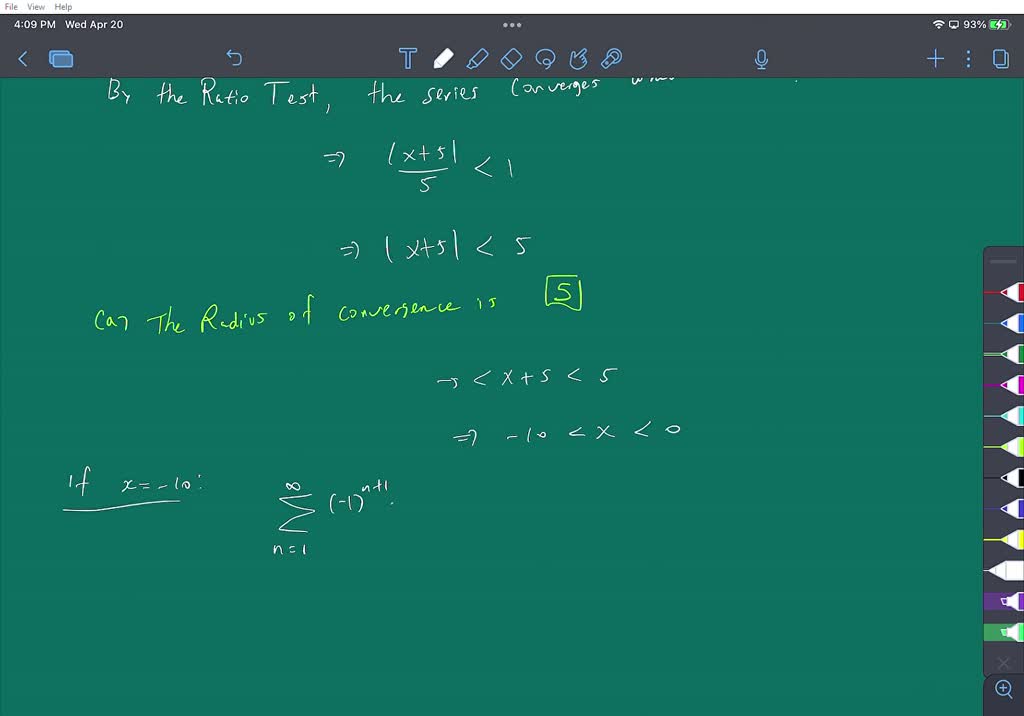 File View Help
4:09 PM Wed Apr 20
93%
T
By the Ratio Test, the series Converges
⇒ |x+5|/5 < 1
⇒ |x+5| < 5
(a) The Radius of convergence is 5
-5 < x+5 < 5
⇒ -10 < x < 0
If x=-10: ∞ ∑ n=1 (-1)^n+1 .